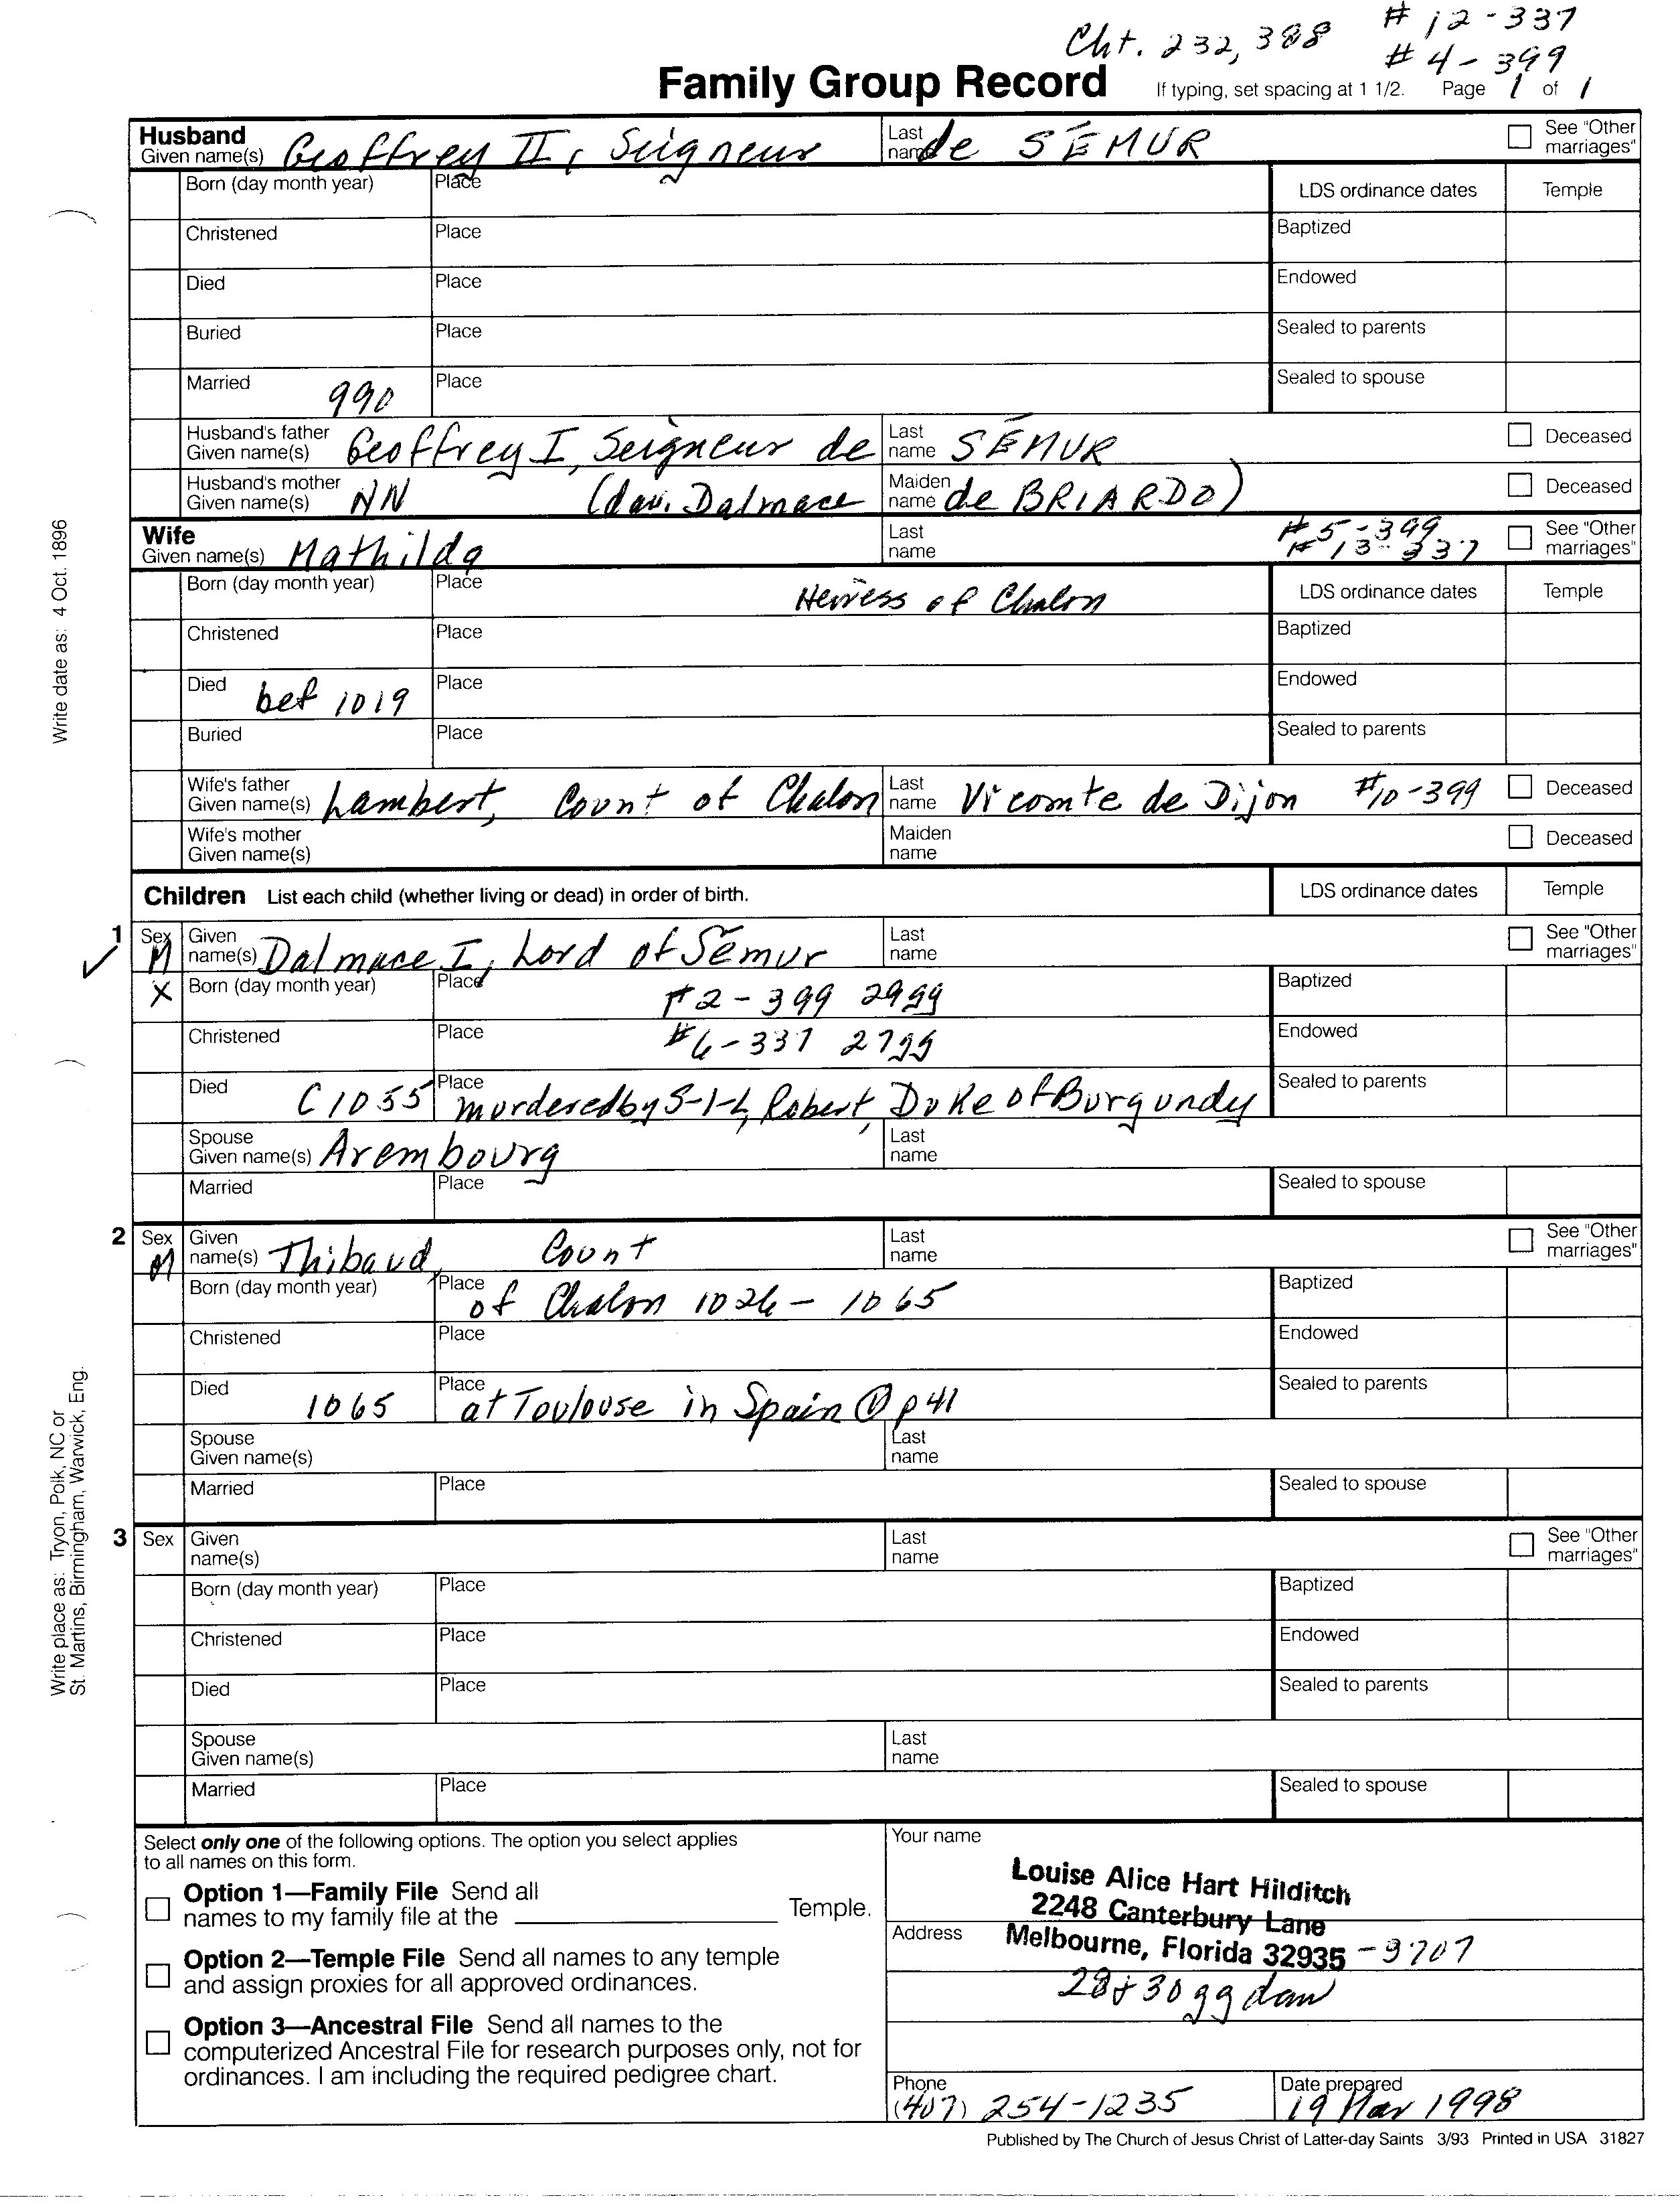 Cht. 232, 388 # 12-337
# 4-399
Family Group Record If typing, set spacing at 1 1/2. Page 1 of 1
Husband Given name(s) Geoffrey II, Seigneur Last name de SÉMUR See "Other marriages"
Born (day month year) Place LDS ordinance dates Temple
Christened Place Baptized
Died Place Endowed
Buried Place Sealed to parents
Married 990 Place Sealed to spouse
Husband's father Given name(s) Geoffrey I, Seigneur de Last name SÉMUR Deceased
Husband's mother Given name(s) NN (dau. Dalmace Maiden name de BRIARDO) Deceased
Wife Given name(s) Mathilda Last name #5-399 #13-337 See "Other marriages"
Born (day month year) Place Heiress of Chalon LDS ordinance dates Temple
Christened Place Baptized
Died bef 1019 Place Endowed
Buried Place Sealed to parents
Wife's father Given name(s) Lambert, Count of Chalon Last name Vicomte de Dijon #10-399 Deceased
Wife's mother Given name(s) Maiden name Deceased
Children List each child (whether living or dead) in order of birth. LDS ordinance dates Temple
1 Sex M Given name(s) Dalmace I, Lord of Sémur Last name See "Other marriages"
X Born (day month year) Place #2-399 29gg Baptized
Christened Place #6-337 27gg Endowed
Died C1035 Place murdered by S-I-L, Robert, Duke of Burgundy Sealed to parents
Spouse Given name(s) Arembourg Last name
Married Place Sealed to spouse
2 Sex M Given name(s) Thibaud, Count Last name See "Other marriages"
Born (day month year) Place of Chalon 1026-1065 Baptized
Christened Place Endowed
Died 1065 Place at Toulouse in Spain p41 Sealed to parents
Spouse Given name(s) Last name
Married Place Sealed to spouse
3 Sex Given name(s) Last name See "Other marriages"
Born (day month year) Place Baptized
Christened Place Endowed
Died Place Sealed to parents
Spouse Given name(s) Last name
Married Place Sealed to spouse
Select only one of the following options. The option you select applies
to all names on this form.
Option 1—Family File Send all
names to my family file at the Temple.
Option 2—Temple File Send all names to any temple
and assign proxies for all approved ordinances.
Option 3—Ancestral File Send all names to the
computerized Ancestral File for research purposes only, not for
ordinances. I am including the required pedigree chart.
Your name
Louise Alice Hart Hilditch
2248 Canterbury Lane
Address Melbourne, Florida 32935 -9707
28+30gg dau
Phone (407) 254-1235 Date prepared 19 Mar 1998
Published by The Church of Jesus Christ of Latter-day Saints 3/93 Printed in USA 31827
Write date as: 4 Oct. 1896
Write place as: Tryon, Polk, NC or
St. Martins, Birmingham, Warwick, Eng.